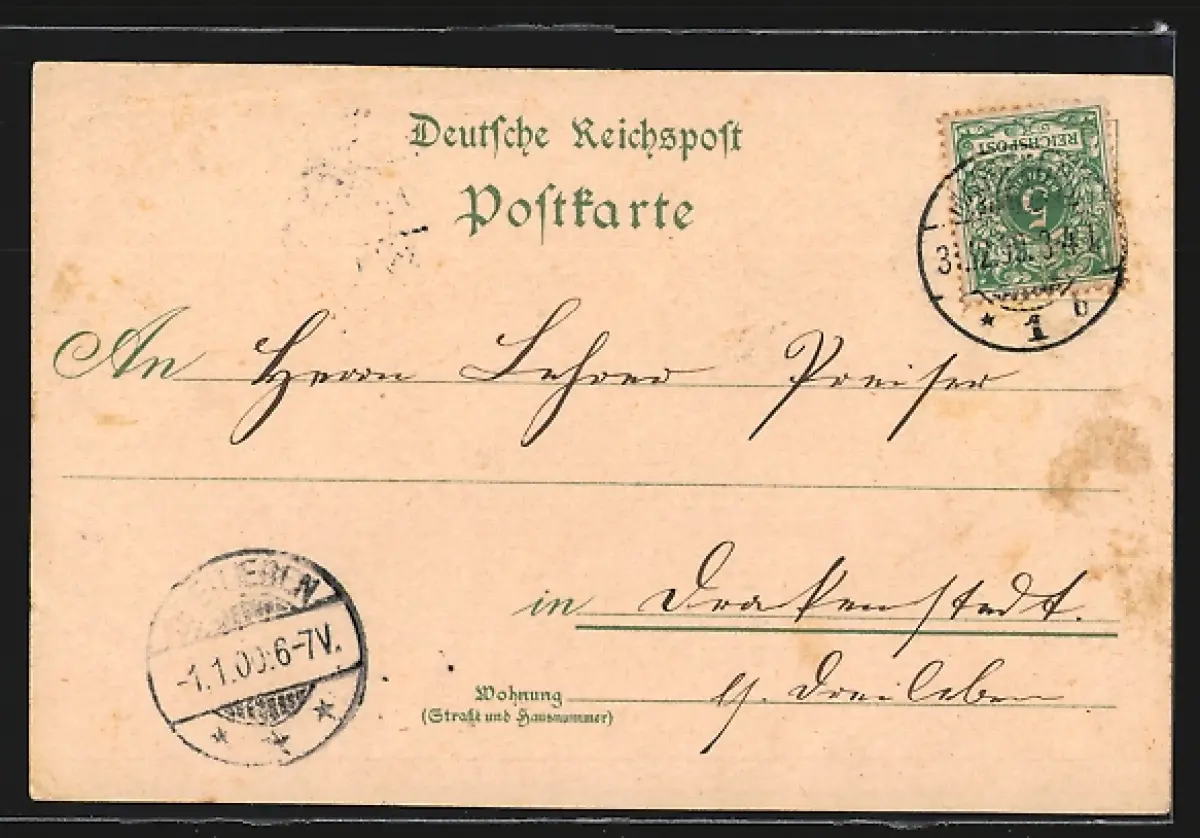 Deutsche Reichspost
Postkarte
REICHSPOST
5
31.12.99. 3-4 N
* 1 b
An Herrn Lehrer Preiser
in Drakenstedt.
Wohnung b. Dreileben
(Straße und Hausnummer)
-1.1.00.6-7V.